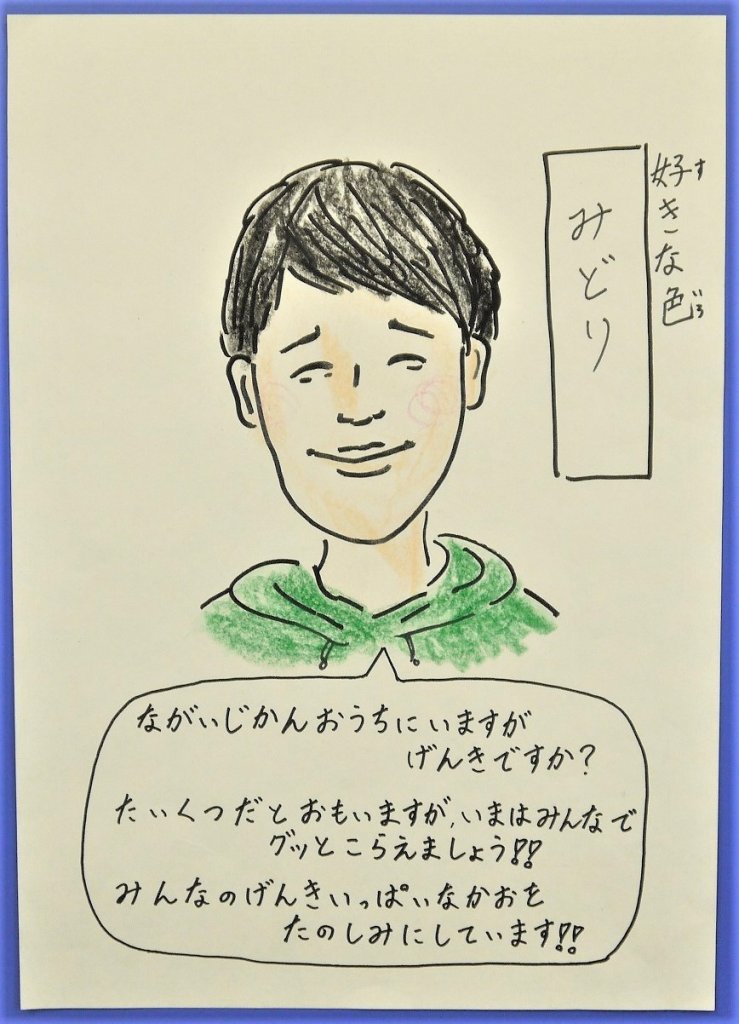 好きな色
す
いろ
みどり
ながいじかんおうちにいますが
げんきですか?
たいくつだとおもいますが、いまはみんなで
グッとこらえましょう!!
みんなのげんきいっぱいなかおを
たのしみにしています!!